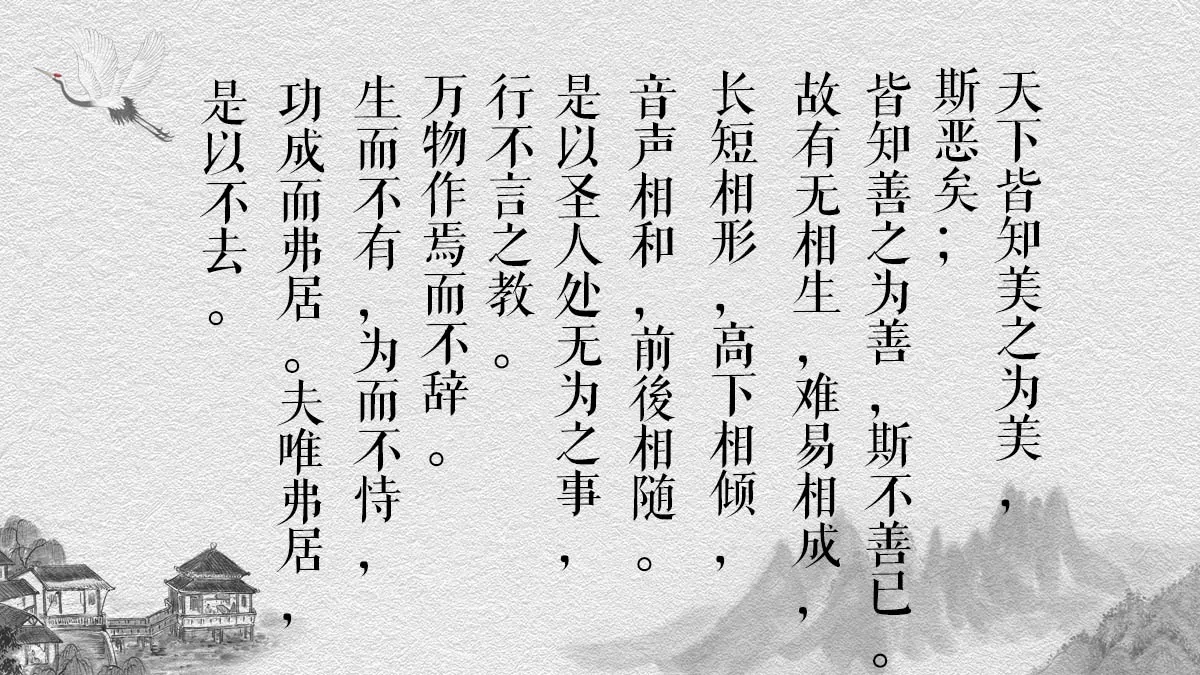 天下皆知美之为美，
斯恶矣；
皆知善之为善，斯不善已。
故有无相生，难易相成，
长短相形，高下相倾，
音声相和，前後相随。
是以圣人处无为之事，
行不言之教。
万物作焉而不辞。
生而不有，为而不恃，
功成而弗居。夫唯弗居，
是以不去。